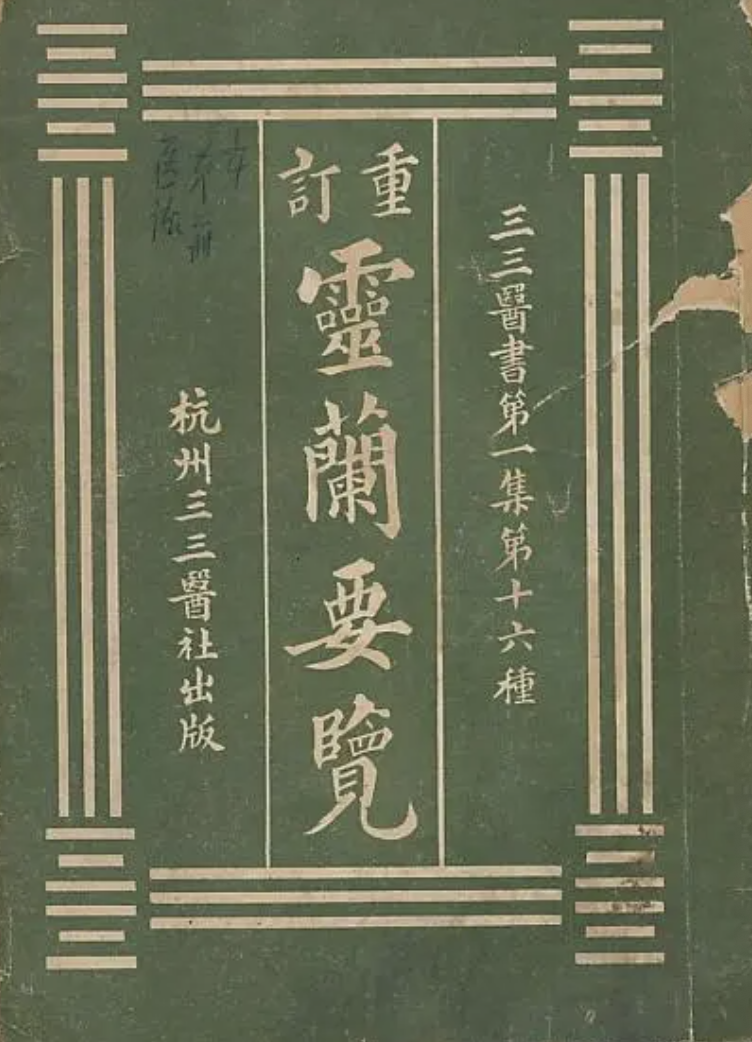 三三醫書第一集第十六種
重訂
靈蘭要覽
杭州三三醫社出版